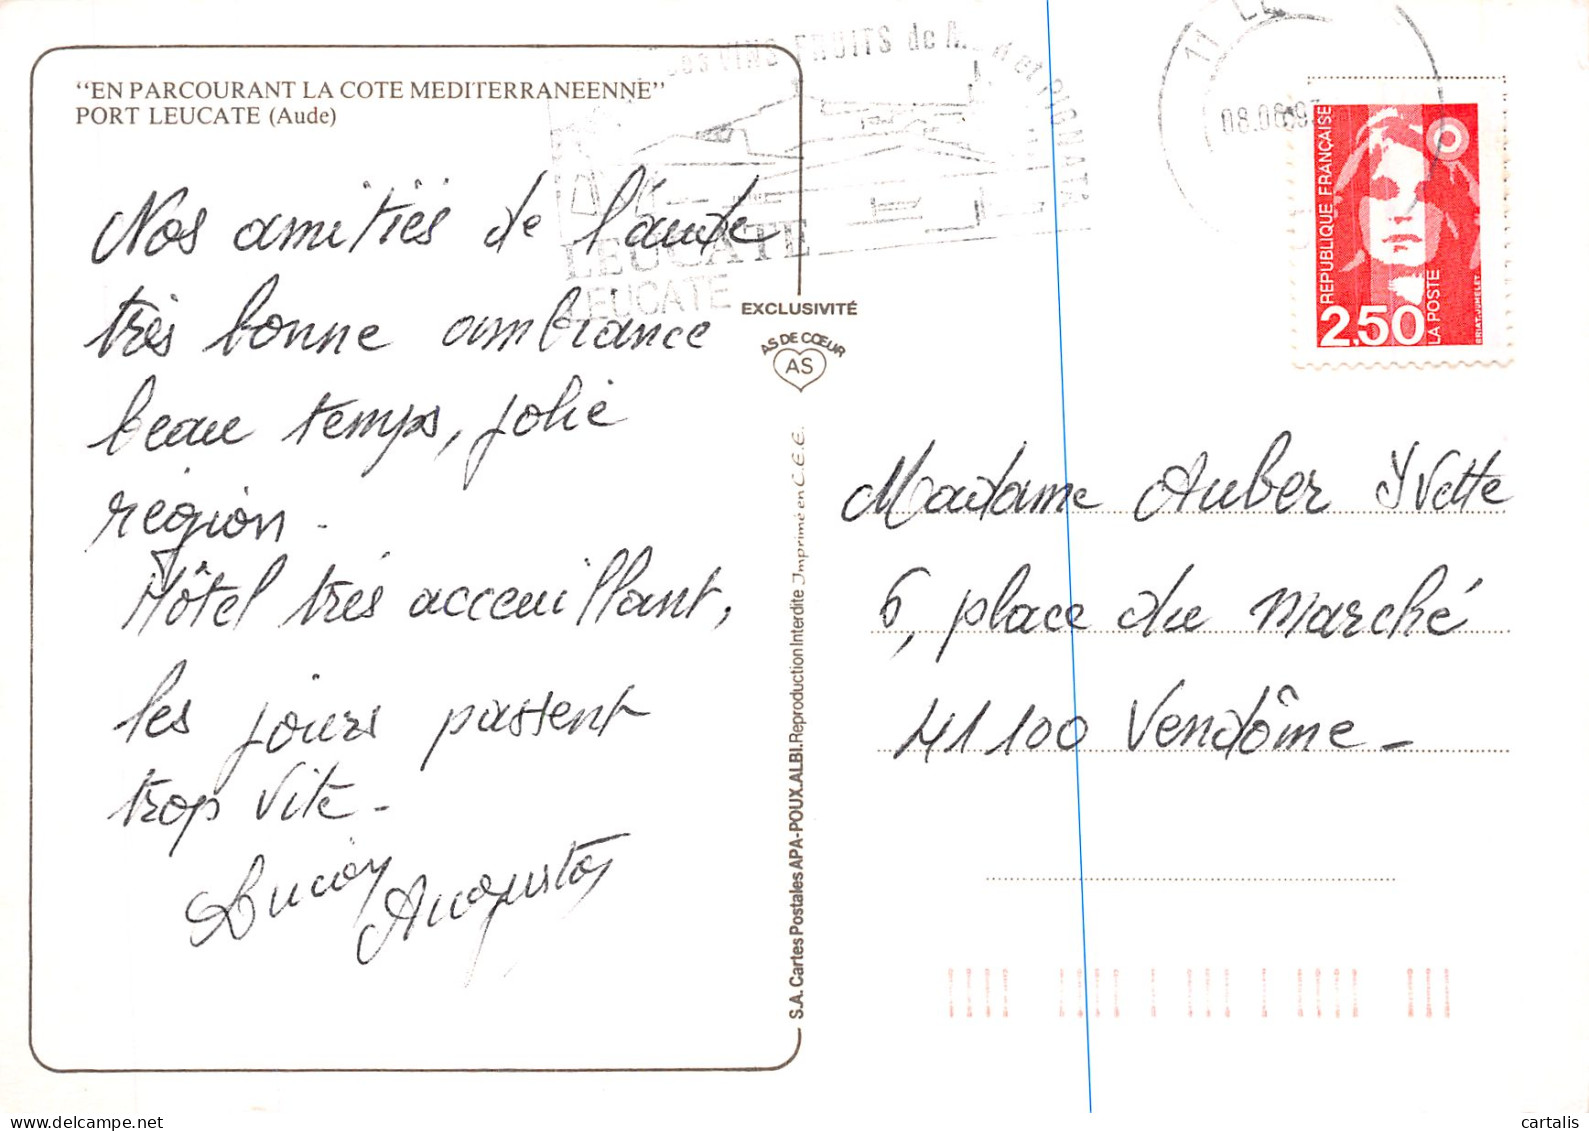 "EN PARCOURANT LA COTE MEDITERRANEENNE"
PORT LEUCATE (Aude)
Nos amitiés de l'aude
très bonne ambiance
beau temps, jolie
région -
Hôtel très acceuillant,
les jours passent
trop vite -
Augusta
VINS FRUITS de
LEUCATE
LEUCATE
EXCLUSIVITÉ
AS DE CŒUR
AS
S.A. Cartes Postales APA-POUX.ALBI. Reproduction Interdite Imprimé en C.E.E.
11 LE
08.06.9
REPUBLIQUE FRANÇAISE
2,50
LA POSTE
BRIAT-JUMELET
Madame Auber Yvette
6, place du Marché
41100 Vendôme -
cartalis
https://www.delcampe.net